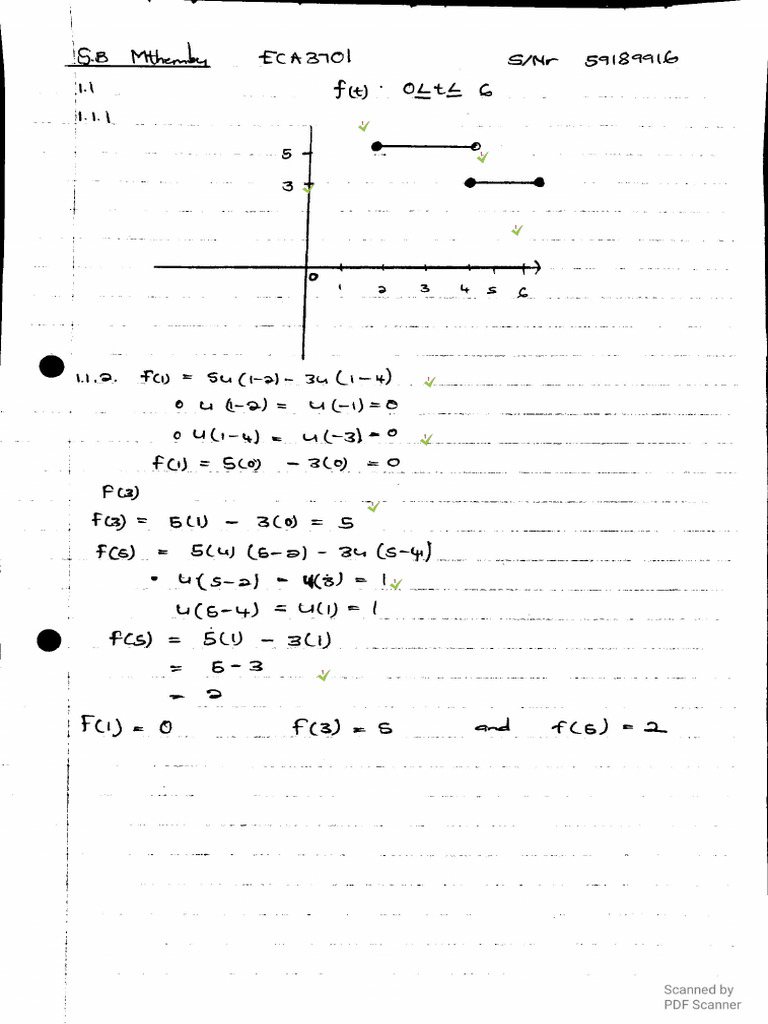 S.B Mthembu ECA3701 S/Nr 59189916
1.1 f(t) · 0≤t≤ 6
1.1.1
5
3
0 1 2 3 4 5 6
1.1.2. f(1) = 5u(1-2) - 3u(1-4)
o u(1-2) = u(-1) = 0
o u(1-4) = u(-3) = 0
f(1) = 5(0) - 3(0) = 0
f(3)
f(3) = 5(1) - 3(0) = 5
f(5) = 5(u)(5-2) - 3u(5-4)
• u(5-2) = u(3) = 1
u(5-4) = u(1) = 1
f(5) = 5(1) - 3(1)
= 5-3
= 2
F(1) = 0 f(3) = 5 and f(5) = 2
Scanned by
PDF Scanner